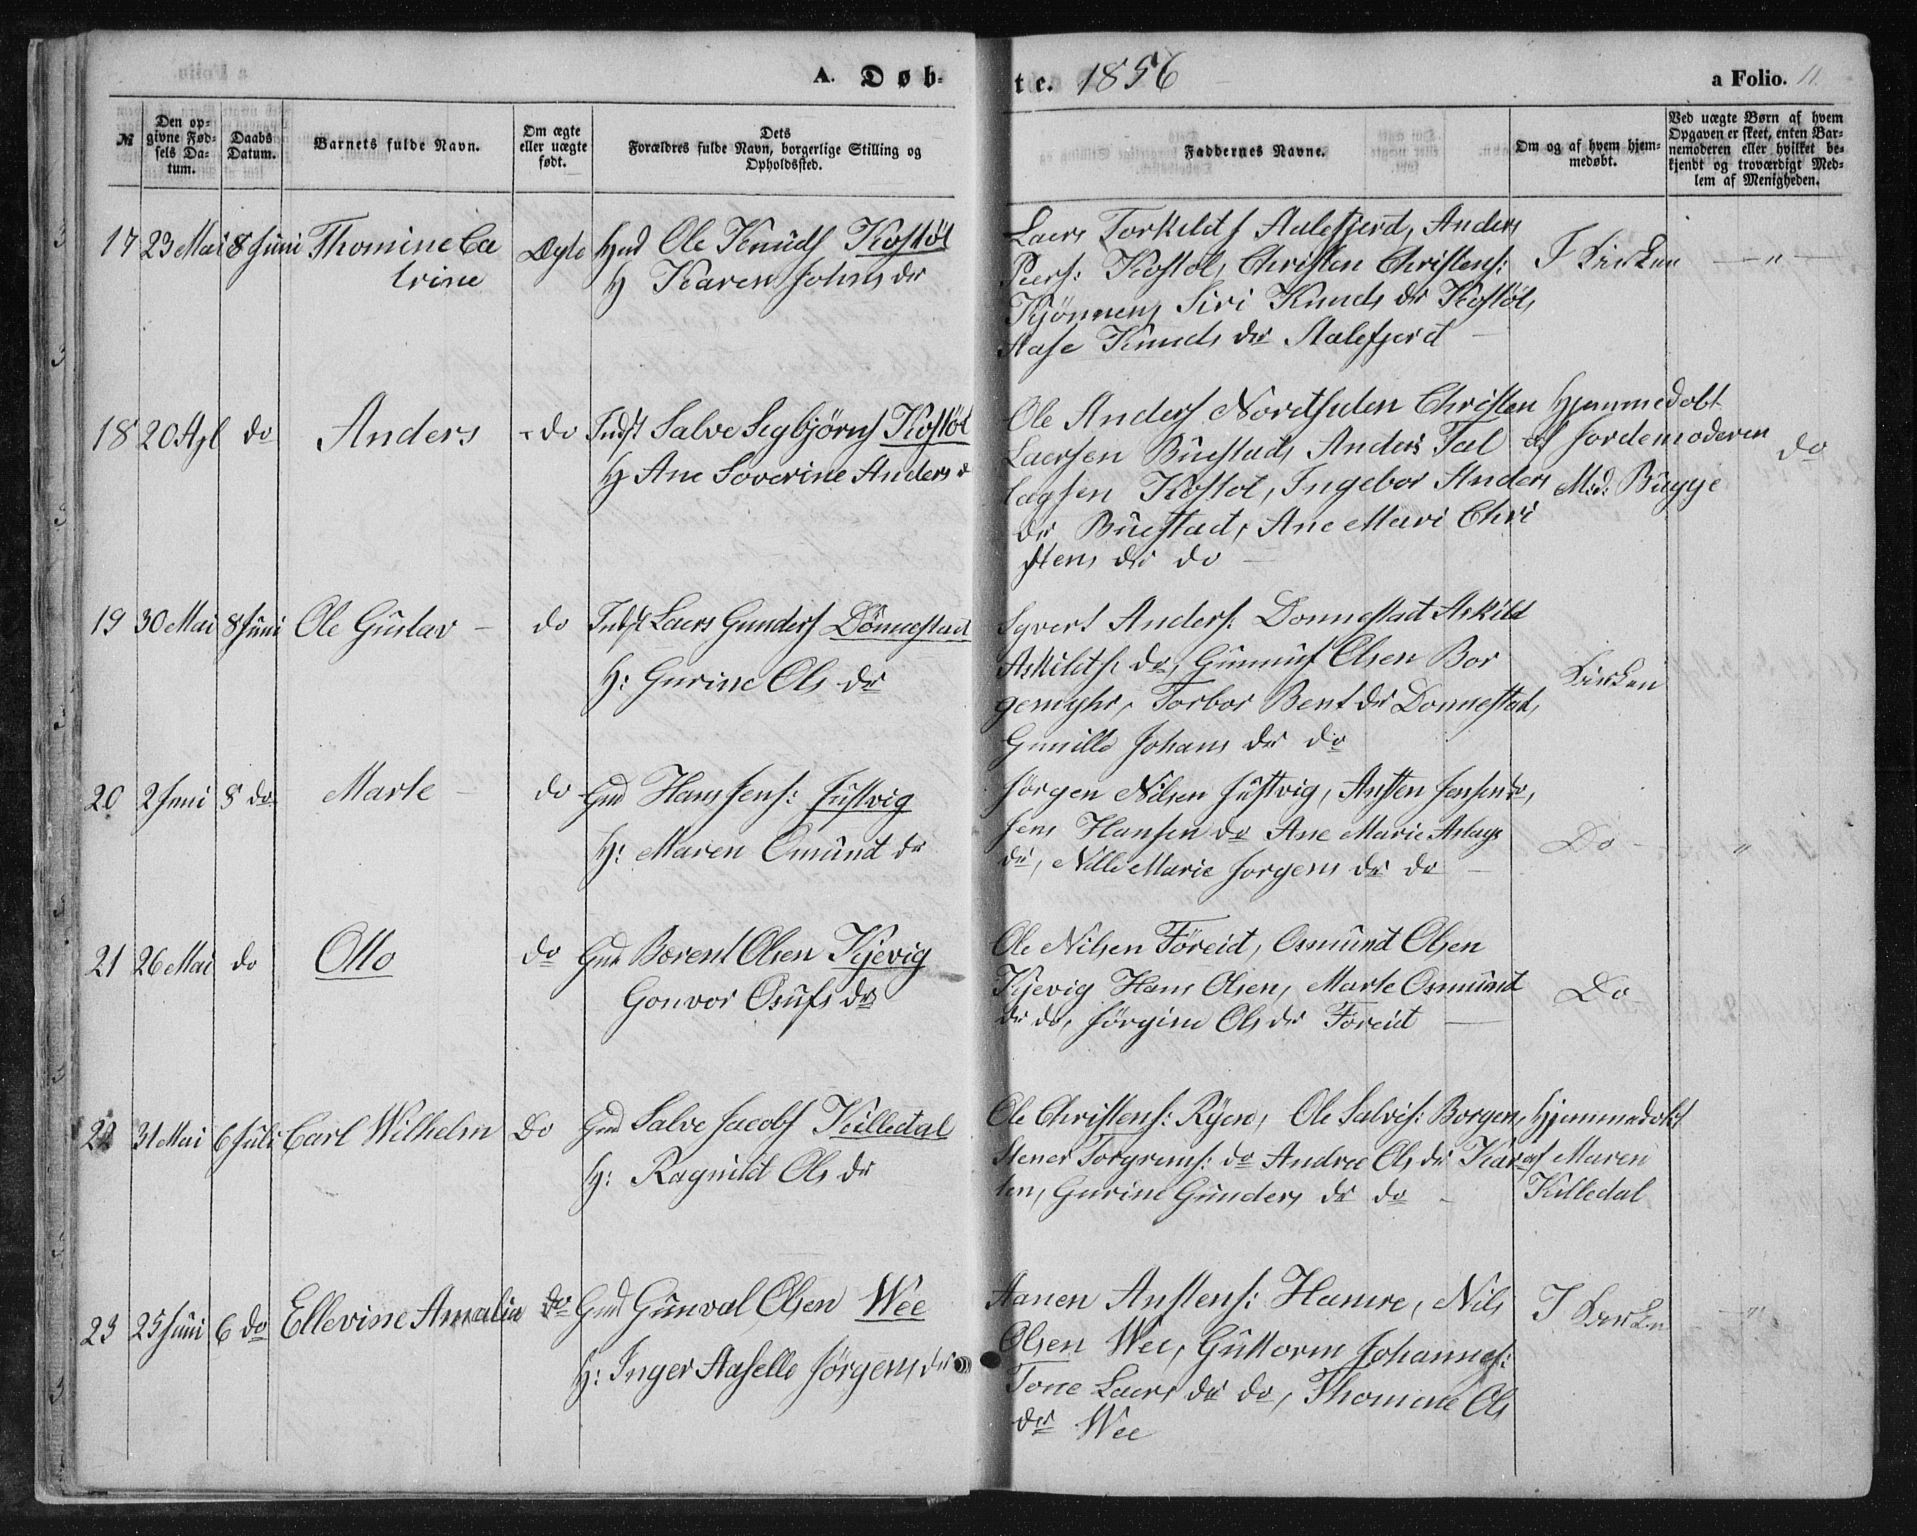 A. Døb-
te. 1856
a Folio. 11.
№
Den op-
givne Fød-
sels Da-
tum.
Daabs
Datum.
Barnets fulde Navn.
Om ægte
eller uægte
født.
Dets
Forældres fulde Navn, borgerlige Stilling og
Opholdssted.
Faddernes Navne.
Om og af hvem hjem-
medøbt.
Ved uægte Børn af hvem
Opgaven er skeet, enten Bar-
nemoderen eller hvilket be-
kjendt og troværdigt Med-
lem af Menigheden.
17 23 Mai 8 Juni Thomine Ca
trine
Ægte
Hmd Ole Knuds Kostøl
H Karen Johns dr
Laers Torkilds Aalefjerd, Anders
Peers: Kostøl, Christen Christens:
Kjønnen, Siri Knuds dr Kostøl,
Aase Knuds dr Aalefjerd
I Kirken
— " —
18 20 Apl do Anders
do
Indst Salve Segbjørns Kostøl
H Ane Soverine Anders d
Ole Anders Nordhsiden Christen
Laersen Buestad, Anders Tel
lagsen Kostol, Ingebor Anders
dr Buestad, Ane Mari Chri
stens dr do —
Hjemmedobt
af Jordemoderen
Md: Bugge
do
19 30 Mai 8 Juni Ole Gustav —
do
Indst Laers Gunders Dønnestad
H: Gurine Ols dr
Syvert Anders: Donnestad Askild
Askilds: do, Gunnuf Olsen Bor
gemyhr, Torbor Bent dr Donnestad,
Gunille Johans dr do
Kirken
20 2 Juni 8 do Marte —
do
Gmd Hans Jens: Justvig
H: Maren Omund dr
Jørgen Nilsen Justvig, Austen Jensen do,
Jens Hansen do Ane Marie Aslags
dr, Nille Marie Jorgens dr do —
Do —
"
21 26 Mai do Otto
do
Gmd Berent Olsen Kjevig
Gonvor Osufs dr
Ole Nilsen Føreid, Osmund Olsen
Kjevig Hans Olsen, Marte Osmund
dr do, Jørgine Ols dr Foreid —
Do
22 31 Mai 6 Juli Carl Wilhelm
Do
Gmd Salve Jacobs Killedal
H: Ragnild Ols dr
Ole Christens: Ryen, Ole Salves: Borgen,
Stener Torgrims: do Andrea Ols dr Kar
ten, Gurine Gunders dr do —
Hjemmedobt
af Maren
Killedal
23 25 Juni 6 do Ellevine Amalia
do
Gmd Gunval Olsen Wee
H: Inger Aaselle Jørgens dr
Aanen Austens: Hamre, Nils
Olsen Wee, Guttorm Johannes:
Tone Laers dr do, Thomine Ols
dr Wee
I Kirken
"